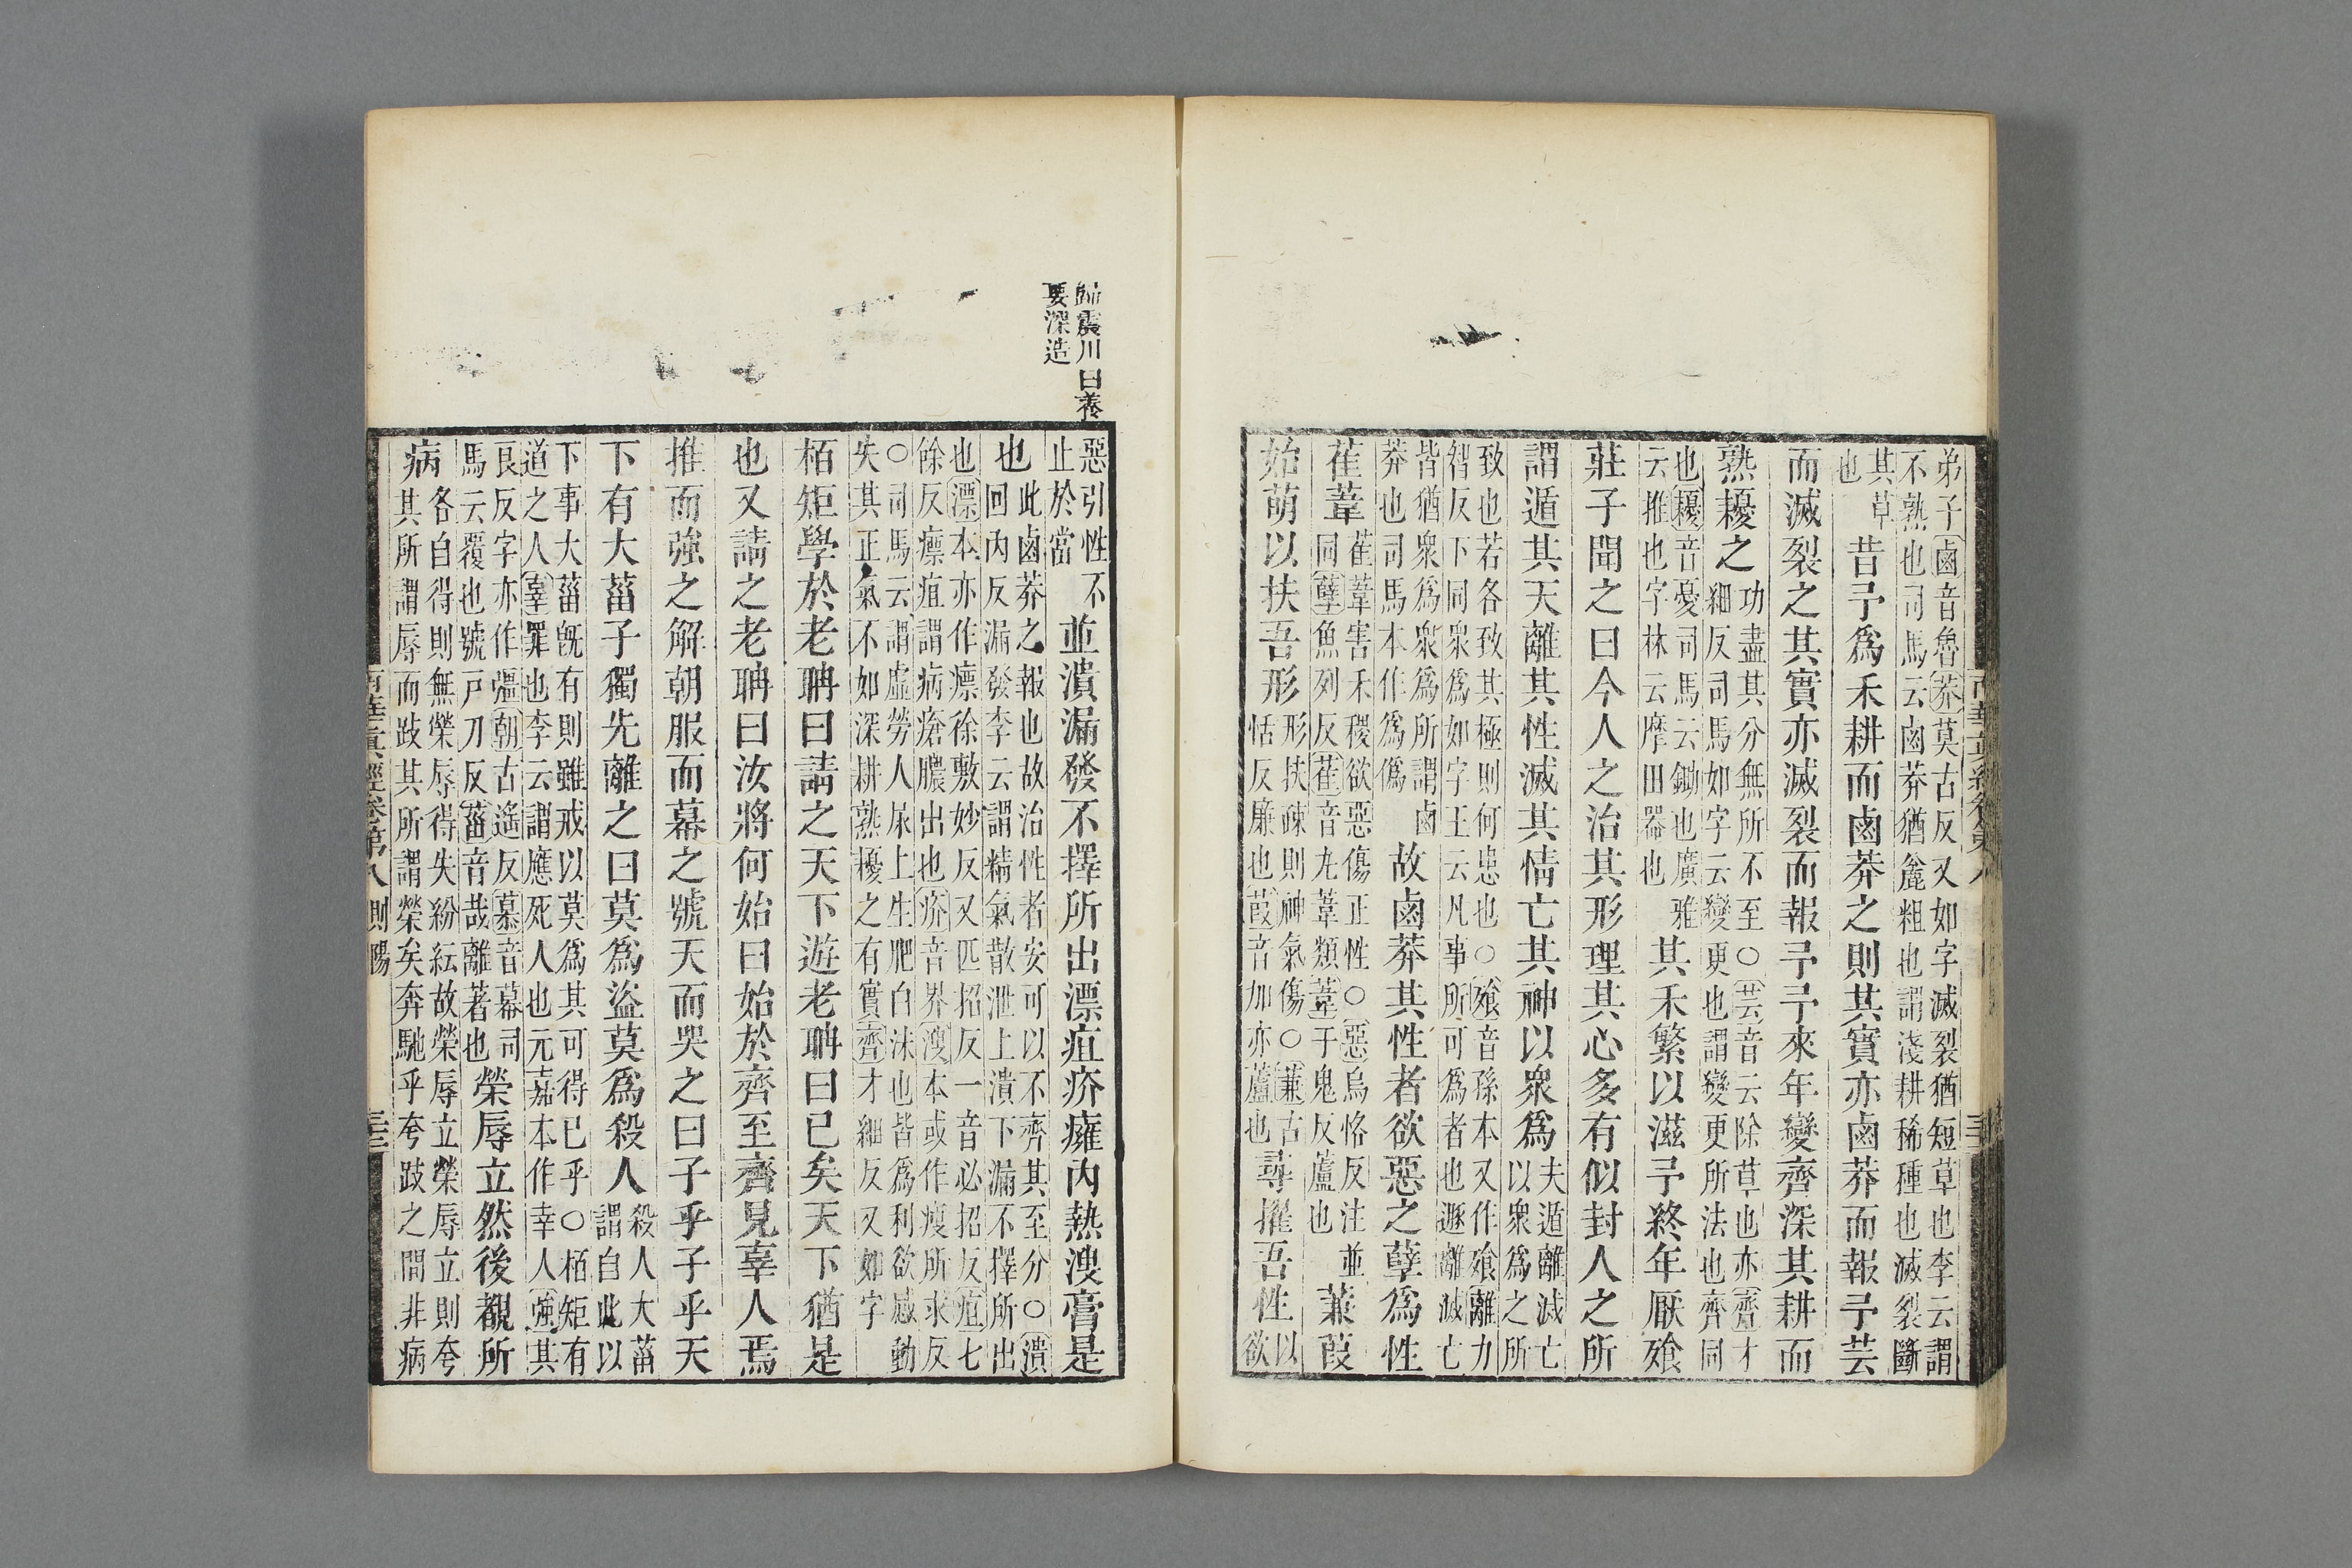 弟子鹵音魯莽莫古反又如字滅裂猶短草也李云謂
不熟也司馬云鹵莽猶麄粗也謂淺耕稀種也滅裂斷
其草
也
昔予爲禾耕而鹵莽之則其實亦鹵莽而報予芸
而滅裂之其實亦滅裂而報予予來年變齊深其耕而
熟耰之
功盡其分無所不至○芸音云除草也亦齊才
細反司馬如字云變更也謂變更所法也齊同
也耰音憂司馬云鋤也廣雅
云推也字林云摩田器也
其禾繁以滋予終年厭飱
莊子聞之曰今人之治其形理其心多有似封人之所
謂遁其天離其性滅其情亡其神以衆爲
夫遁離滅亡
以衆爲之所
致也若各致其極則何患也○飱音孫本又作飱離力
智反下同衆爲如字王云凡事所可爲者也遯離滅亡
皆猶衆爲衆爲所謂鹵
莽也司馬本作爲僞
故鹵莽其性者欲惡之孽爲性
萑葦
萑葦害禾稷欲惡傷正性○惡烏恪反注並
同孽魚列反萑音丸葦類葦于鬼反蘆也
蒹葭
始萌以扶吾形
形扶疎則神氣傷○蒹古
恬反廉也葭音加亦蘆也
尋擢吾性
以
欲
歸震川曰養
要深造
惡引性不
止於當
並潰漏發不擇所出漂疽疥癰內熱溲膏是
也
此鹵莽之報也故治性者安可以不齊其至分○潰
回內反漏發李云謂精氣散泄上潰下漏不擇所出
也漂本亦作瘭徐敷妙反又匹招反一音必招反疽七
餘反瘭疽謂病瘡膿出也疥音界溲本或作瘦所求反
○司馬云謂虛勞人尿上生肥白沫也皆爲利欲感動
失其正氣不如深耕熟耰之有實齊才細反又如字
栢矩學於老聃曰請之天下遊老聃曰已矣天下猶是
也又請之老聃曰汝將何始曰始於齊至齊見辜人焉
推而強之解朝服而幕之號天而哭之曰子乎子乎天
下有大菑子獨先離之曰莫爲盜莫爲殺人
殺人大菑
謂自此以
下事大菑旣有則雖戒以莫爲其可得已乎○栢矩有
道之人辜罪也李云謂應死人也元嘉本作幸人強其
良反字亦作彊朝古遙反慕音幕司
馬云覆也號戸刀反菑音哉離著也
榮辱立然後覩所
病
各自得則無榮辱得失紛紜故榮辱立榮辱立則夸
其所謂辱而跂其所謂榮矣奔馳乎夸跂之間非病
南華真經卷第八 則陽